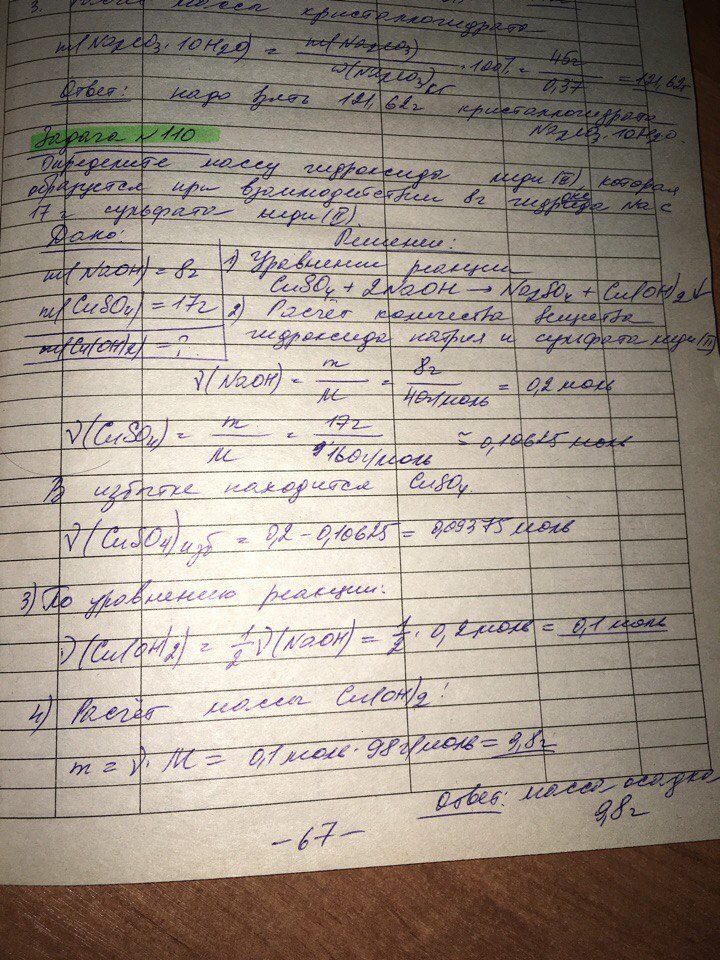 3. Расчёт массы кристаллогидрата
m(Na2CO3·10H2O) = m(Na2CO3) / ω(Na2CO3)кг · 100% = 45г / 0,37 = 121,62г
Ответ: надо взять 121,62г кристаллогидрата
Na2CO3·10H2O.
Задача №110
Определите массу гидроксида меди(II), которая
образуется при взаимодействии 8г гидроксида Na с
17 г сульфата меди(II)
Дано: Решение:
m(NaOH) = 8г 1) Уравнение реакции
CuSO4 + 2NaOH → Na2SO4 + Cu(OH)2↓
m(CuSO4) = 17г 2) Расчёт количества вещества
m(Cu(OH)2) = ? гидроксида натрия и сульфата меди(II)
ν(NaOH) = m / M = 8г / 40г/моль = 0,2 моль
ν(CuSO4) = m / M = 17г / 160г/моль ≈ 0,10625 моль
В избытке находится CuSO4.
ν(CuSO4)изб = 0,2 − 0,10625 = 0,09375 моль
3) По уравнению реакции:
ν(Cu(OH)2) = 1/2 ν(NaOH) = 1/2 · 0,2 моль = 0,1 моль
4) Расчёт массы Cu(OH)2:
m = ν·M = 0,1 моль · 98г/моль = 9,8г
Ответ: масса осадка
9,8г
-67-